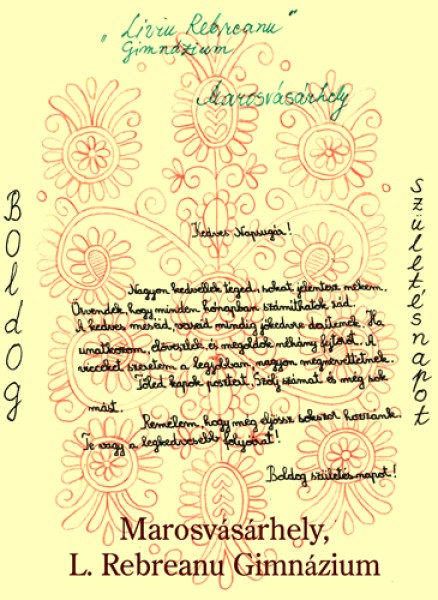 „Liviu Rebreanu"
Gimnázium
Marosvásárhely
Boldog
születésnapot
Kedves Napsugár!
Nagyon kedvellek téged, sokat jelentesz nekem.
Örvendek, hogy minden hónapban számíthatok rád.
A kedves meséid, verseid mindig jókedvre derítenek. Ha
unatkozom, előveszlek és megoldok néhány fejtörőt. A
vicceket szeretem a legjobban, nagyon megnevettetnek.
Tőled kapok postát, Szólj számat és még sok
mást.
Remélem, hogy még eljössz sokszor hozzánk.
Te vagy a legkedvesebb folyóirat!
Boldog születésnapot!
Marosvásárhely,
L. Rebreanu Gimnázium